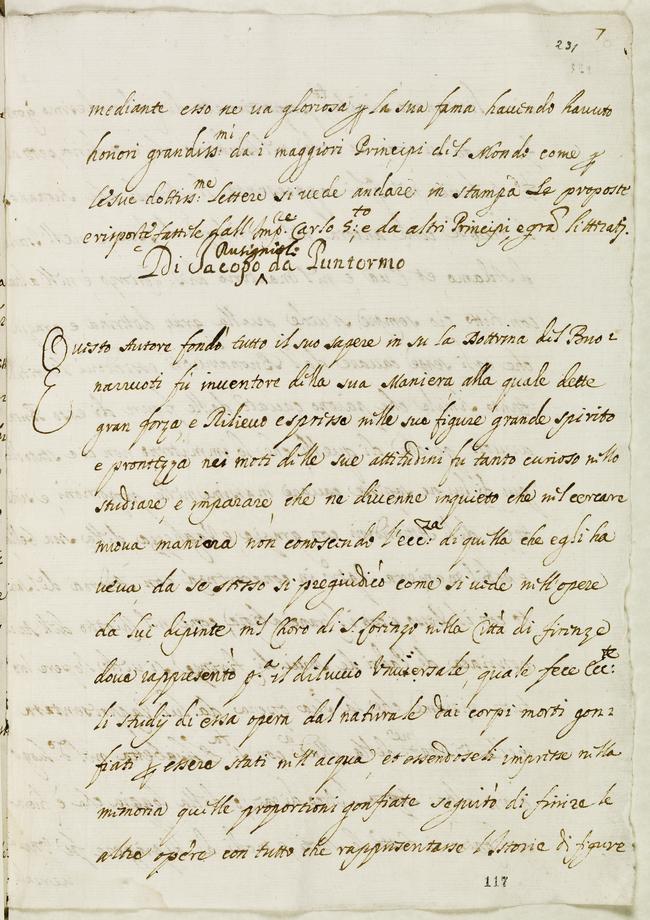 231 7
mediante esso ne va gloriosa p la sua fama havendo havuto
honori grandiss:mi da i maggiori Principi del Mondo come p
le sue dottiss:me lettere si vede andare in stampa Le proposte
e risposte fattele dall' Imp:re Carlo 5:to e da altri Principi, e gra litterati.
Di Jacopo Rusignol: da Puntormo
Questo Autore fondò tutto il suo sapere in su la Dottrina del Buo=
narruoti fù inventore della sua Maniera alla quale dette
gran forza, e Rilievo espresse nelle sue figure grande spirito
e prontezza nei moti delle sue attitudini fu tanto curioso nello
studiare, e imparare che ne divenne inquieto che nel cercare
nuova maniera non conoscendo l'ecc:za di quella che egli ha
veva da se stesso si pregiudicò come si vede nell'opere
da lui dipinte nel Choro di S. Lorenzo nella Città di firenze
dove rappresentò p:a il diluvio Universale, quale fece
li studij di essa opera dal naturale dai corpi morti gon=
fiati p essere stati nell'acqua, et essendoseli impresse nella
memoria quelle proportioni gonfiate seguitò di finire le
altre opere con tutto che rappresentasse l'Istorie di figure
117